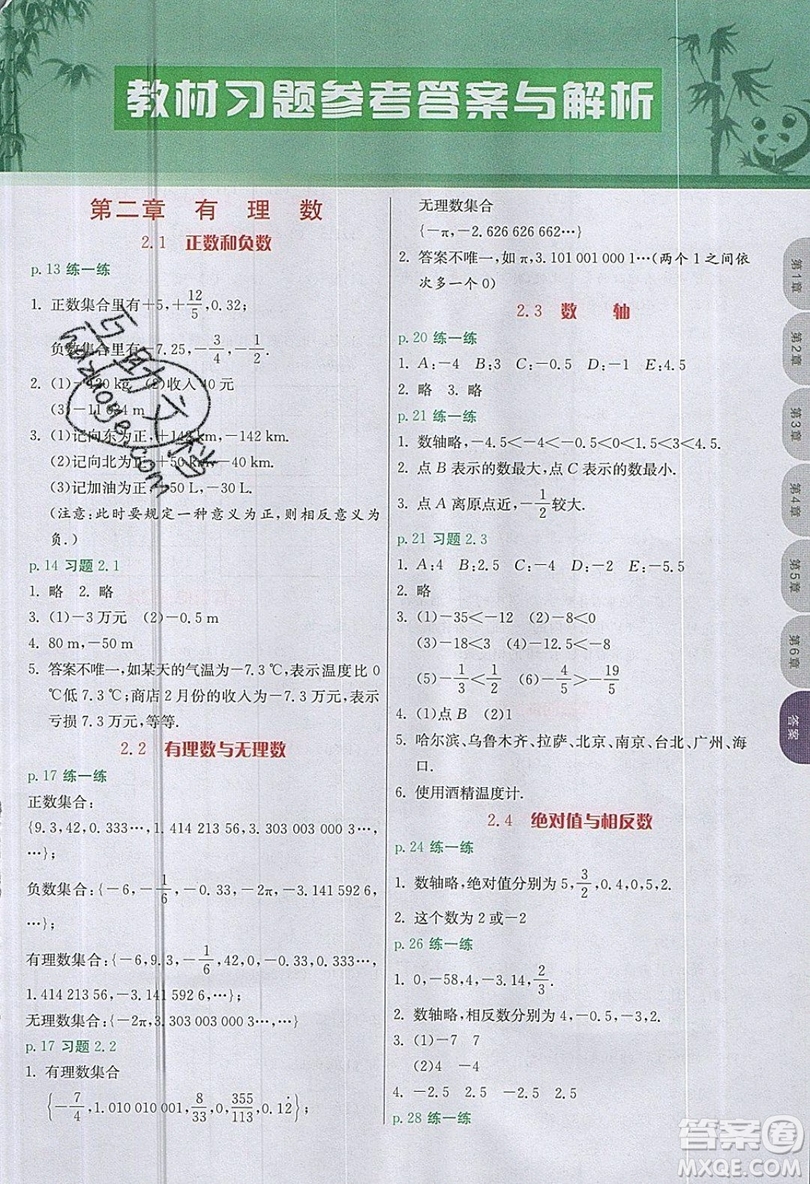 教材习题参考答案与解析
第二章 有 理 数
2.1 正数和负数
p.13 练一练
1. 正数集合里有+5,+12/5,0.32;
负数集合里有-7.25,-3/4,-1/2.
2. (1)-20 kg (2)收入40元
(3)-11 034 m
3. (1)记向东为正,+142 km,-142 km.
(2)记向北为正,+50 km,-40 km.
(3)记加油为正,+50 L,-30 L.
(注意:此时要规定一种意义为正,则相反意义为
负.)
p.14 习题 2.1
1. 略 2. 略
3. (1)-3 万元 (2)-0.5 m
4. 80 m,-50 m
5. 答案不唯一,如某天的气温为-7.3 ℃,表示温度比 0
℃低 7.3 ℃;商店 2 月份的收入为-7.3 万元,表示
亏损 7.3 万元,等等.
2.2 有理数与无理数
p.17 练一练
正数集合:
{9.3,42,0.333…,1.414 213 56,3.303 003 000 3…,
…};
负数集合:{-6,-1/6,-0.33,-2π,-3.141 592 6,
…};
有理数集合:{-6,9.3,-1/6,42,0,-0.33,0.333…,
1.414 213 56,-3.141 592 6,…};
无理数集合:{-2π,3.303 003 000 3…,…};
p.17 习题 2.2
1. 有理数集合
{-7/4,1.010 010 001,8/33,0,355/113,0.12̇};
无理数集合
{-π,-2.626 626 662…}
2. 答案不唯一,如 π,3.101 001 000 1…(两个 1 之间依
次多一个 0)
2.3 数 轴
p.20 练一练
1. A:-4 B:3 C:-0.5 D:-1 E:4.5
2. 略 3. 略
p.21 练一练
1. 数轴略,-4.5<-4<-1/2<0<1/2<3<4.5.
2. 点 B 表示的数最大,点 C 表示的数最小.
3. 点 A 离原点近,-1/2较大.
p.21 习题 2.3
1. A:4 B:2 C:-1.5 D:0 E:-3
2. 略
3. (1)-35<-12 (2)-8<0
(3)-18<2 (4)-12.5<-8
(5)-1/3<1/2 (6)-5/4>-19/5
4. (1)点 B (2)点 A
5. 哈尔滨、乌鲁木齐、拉萨、北京、南京、台北、广州、海
口.
6. 使用酒精温度计.
2.4 绝对值与相反数
p.24 练一练
1. 数轴略,绝对值分别为 5,3/2,0.4,0,5,2.
2. 这个数为 2 或-2
p.26 练一练
1. 0,-58,4,-3.14,2/3.
2. 数轴略,相反数分别为 4,-0.5,-3,2.
3. (1)-7 7
(2)4 -4
4. -2.5 2.5 -2.5 2.5
p.28 练一练
第1章
第2章
第3章
第4章
第5章
第6章
答案
互助文档
huzuoye.com
答案圈
MXQE.COM